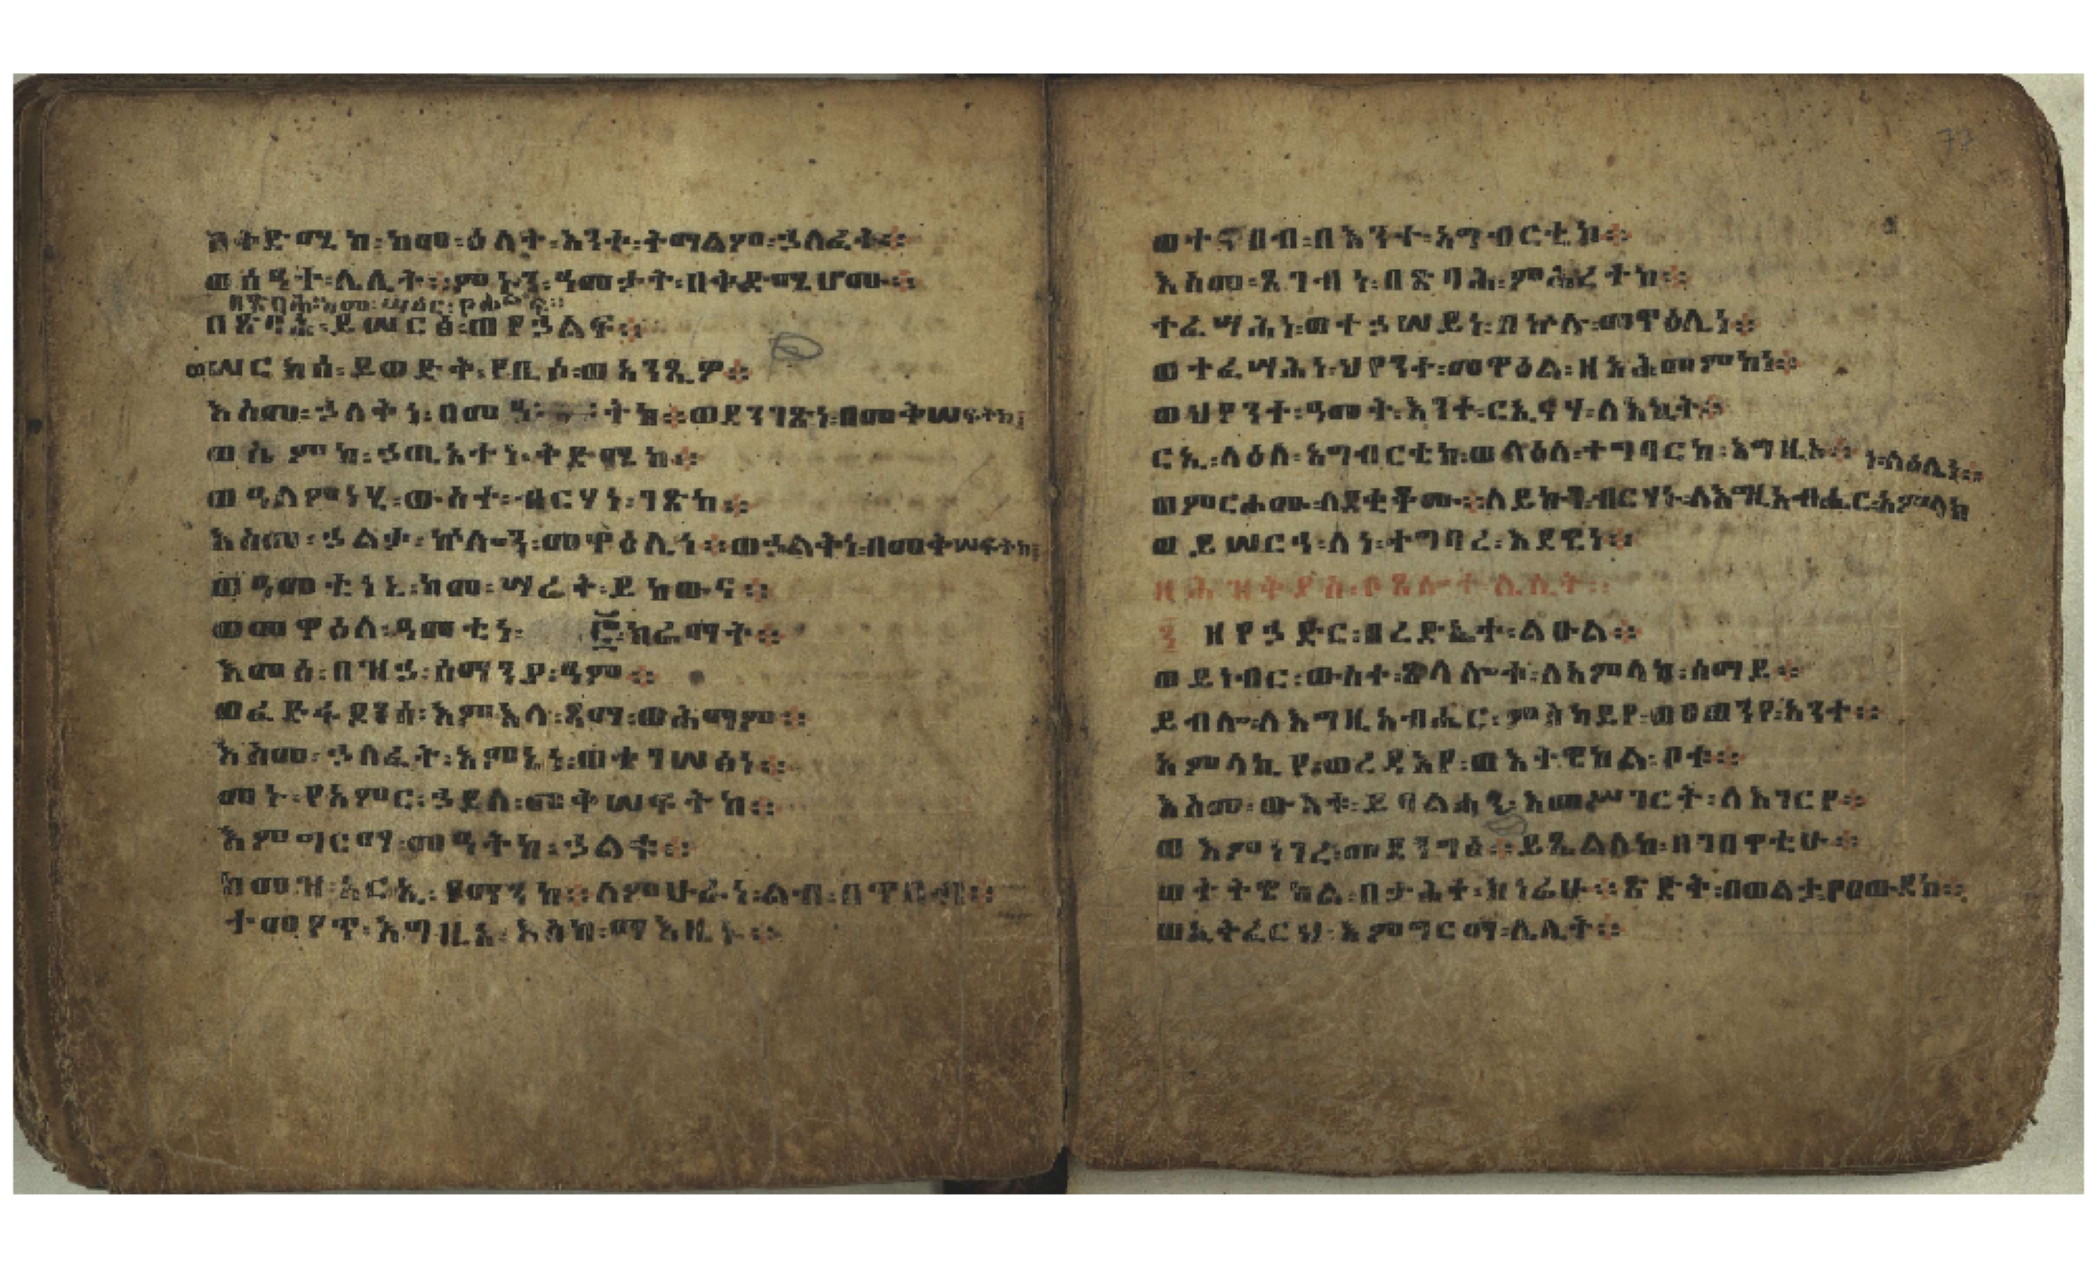 ቅድሜከ፡ከመ፡ዕለት፡እንተ፡ትማልም፡ኃለፈት።
ወሰዓተ፡ሌሊት።ምኑን፡ዓመታት፡በቅድሜሆሙ።
በጽባሕ፡ከመ፡ሣዕር፡የሐልፍ።
በጽባሕ፡ይሠርፅ፡ወየኃልፍ።
ወሠርከሰ፡ይወድቅ፡የቢስ፡ወአንጺዎ።
እስመ፡ኃለቅነ፡በመዓትከ።ወደንገጽነ፡በመቅሠፍትከ፤
ወሤምከ፡ኃጢአተነ፡ቅድሜከ።
ወዓለምነሂ፡ውስተ፡ብርሃነ፡ገጽከ።
እስመ፡ኃልቃ፡ኵሎን፡መዋዕሊነ።ወኃልቅነ፡በመቅሠፍትከ፤
ወዓመቲነኒ፡ከመ፡ሣሬት፡ይከውና።
ወመዋዕለ፡ዓመቲነ፡ ፸ክራማት።
እመሰ፡በዝኃ፡ሰማንያ፡ዓም።
ወፈድፋደንሰ፡እምእላ፡ጻማ፡ወሕማም።
እስመ፡ኃለፈት፡እምኔነ፡ወተገሠፅነ።
መኑ፡የአምር፡ኃይለ፡መቅሠፍትከ።
እምግርማ፡መዓትከ፡ኃልቁ።
ከመዝ፡አርኢ፡የማንከ።ለምሁራነ፡ልብ፡በጥበብ።
ተመየጥ፡እግዚኦ፡እስከ፡ማእዜኑ።
ወተናበብ፡በእንተ፡አግብርቲከ።
እስመ፡ጸገብነ፡በጽባሕ፡ምሕረትከ።
ተፈሣሕነ፡ወተኃሠይነ፡በኵሉ፡መዋዕሊነ።
ወተፈሣሕነ፡ህየንተ፡መዋዕል፡ዘአሕመምከነ።
ወህየንተ፡ዓመት፡እንተ፡ርኢናሃ፡ለእኪት።
ርኢ፡ላዕለ፡አግብርቲከ፡ወላዕለ፡ተግባርከ፡እግዚኦ። ነ፡ላዕሌነ።
ወምርሖሙ፡ለደቂቆሙ።ለይኩን፡ብርሃኑ፡ለእግዚአብሔር፡አምላክ
ወይሠርዓ፡ለነ፡ተግባረ፡እደዊነ።
ዘሕዝቅያስ፡ዐጸሎተ፡ሌሊት።
፺ ዘየኃድር፡በረድኤተ፡ልዑል።
ወይነብር፡ውስተ፡ጽላሎቱ፡ለአምላከ፡ሰማይ።
ይብሎ፡ለእግዚአብሔር፡ምስካይየ፡ወፀወንየ፡አንተ።
አምላኪየ፡ወረዳእየ፡ወእትዌከል፡ቦቱ።
እስመ፡ውእቱ፡ይባልሐኒ፡እመሥገርት፡ለእገርየ።
ወእምነገረ፡መደንግፅ።ይጼልለከ፡በገበዋቲሁ።
ወትትዌከል፡በታሕተ፡ክነፊሁ።ጽድቅ፡በወልታ፡የዐውደከ።
ወኢትፈርህ፡እምግርማ፡ሌሊት።